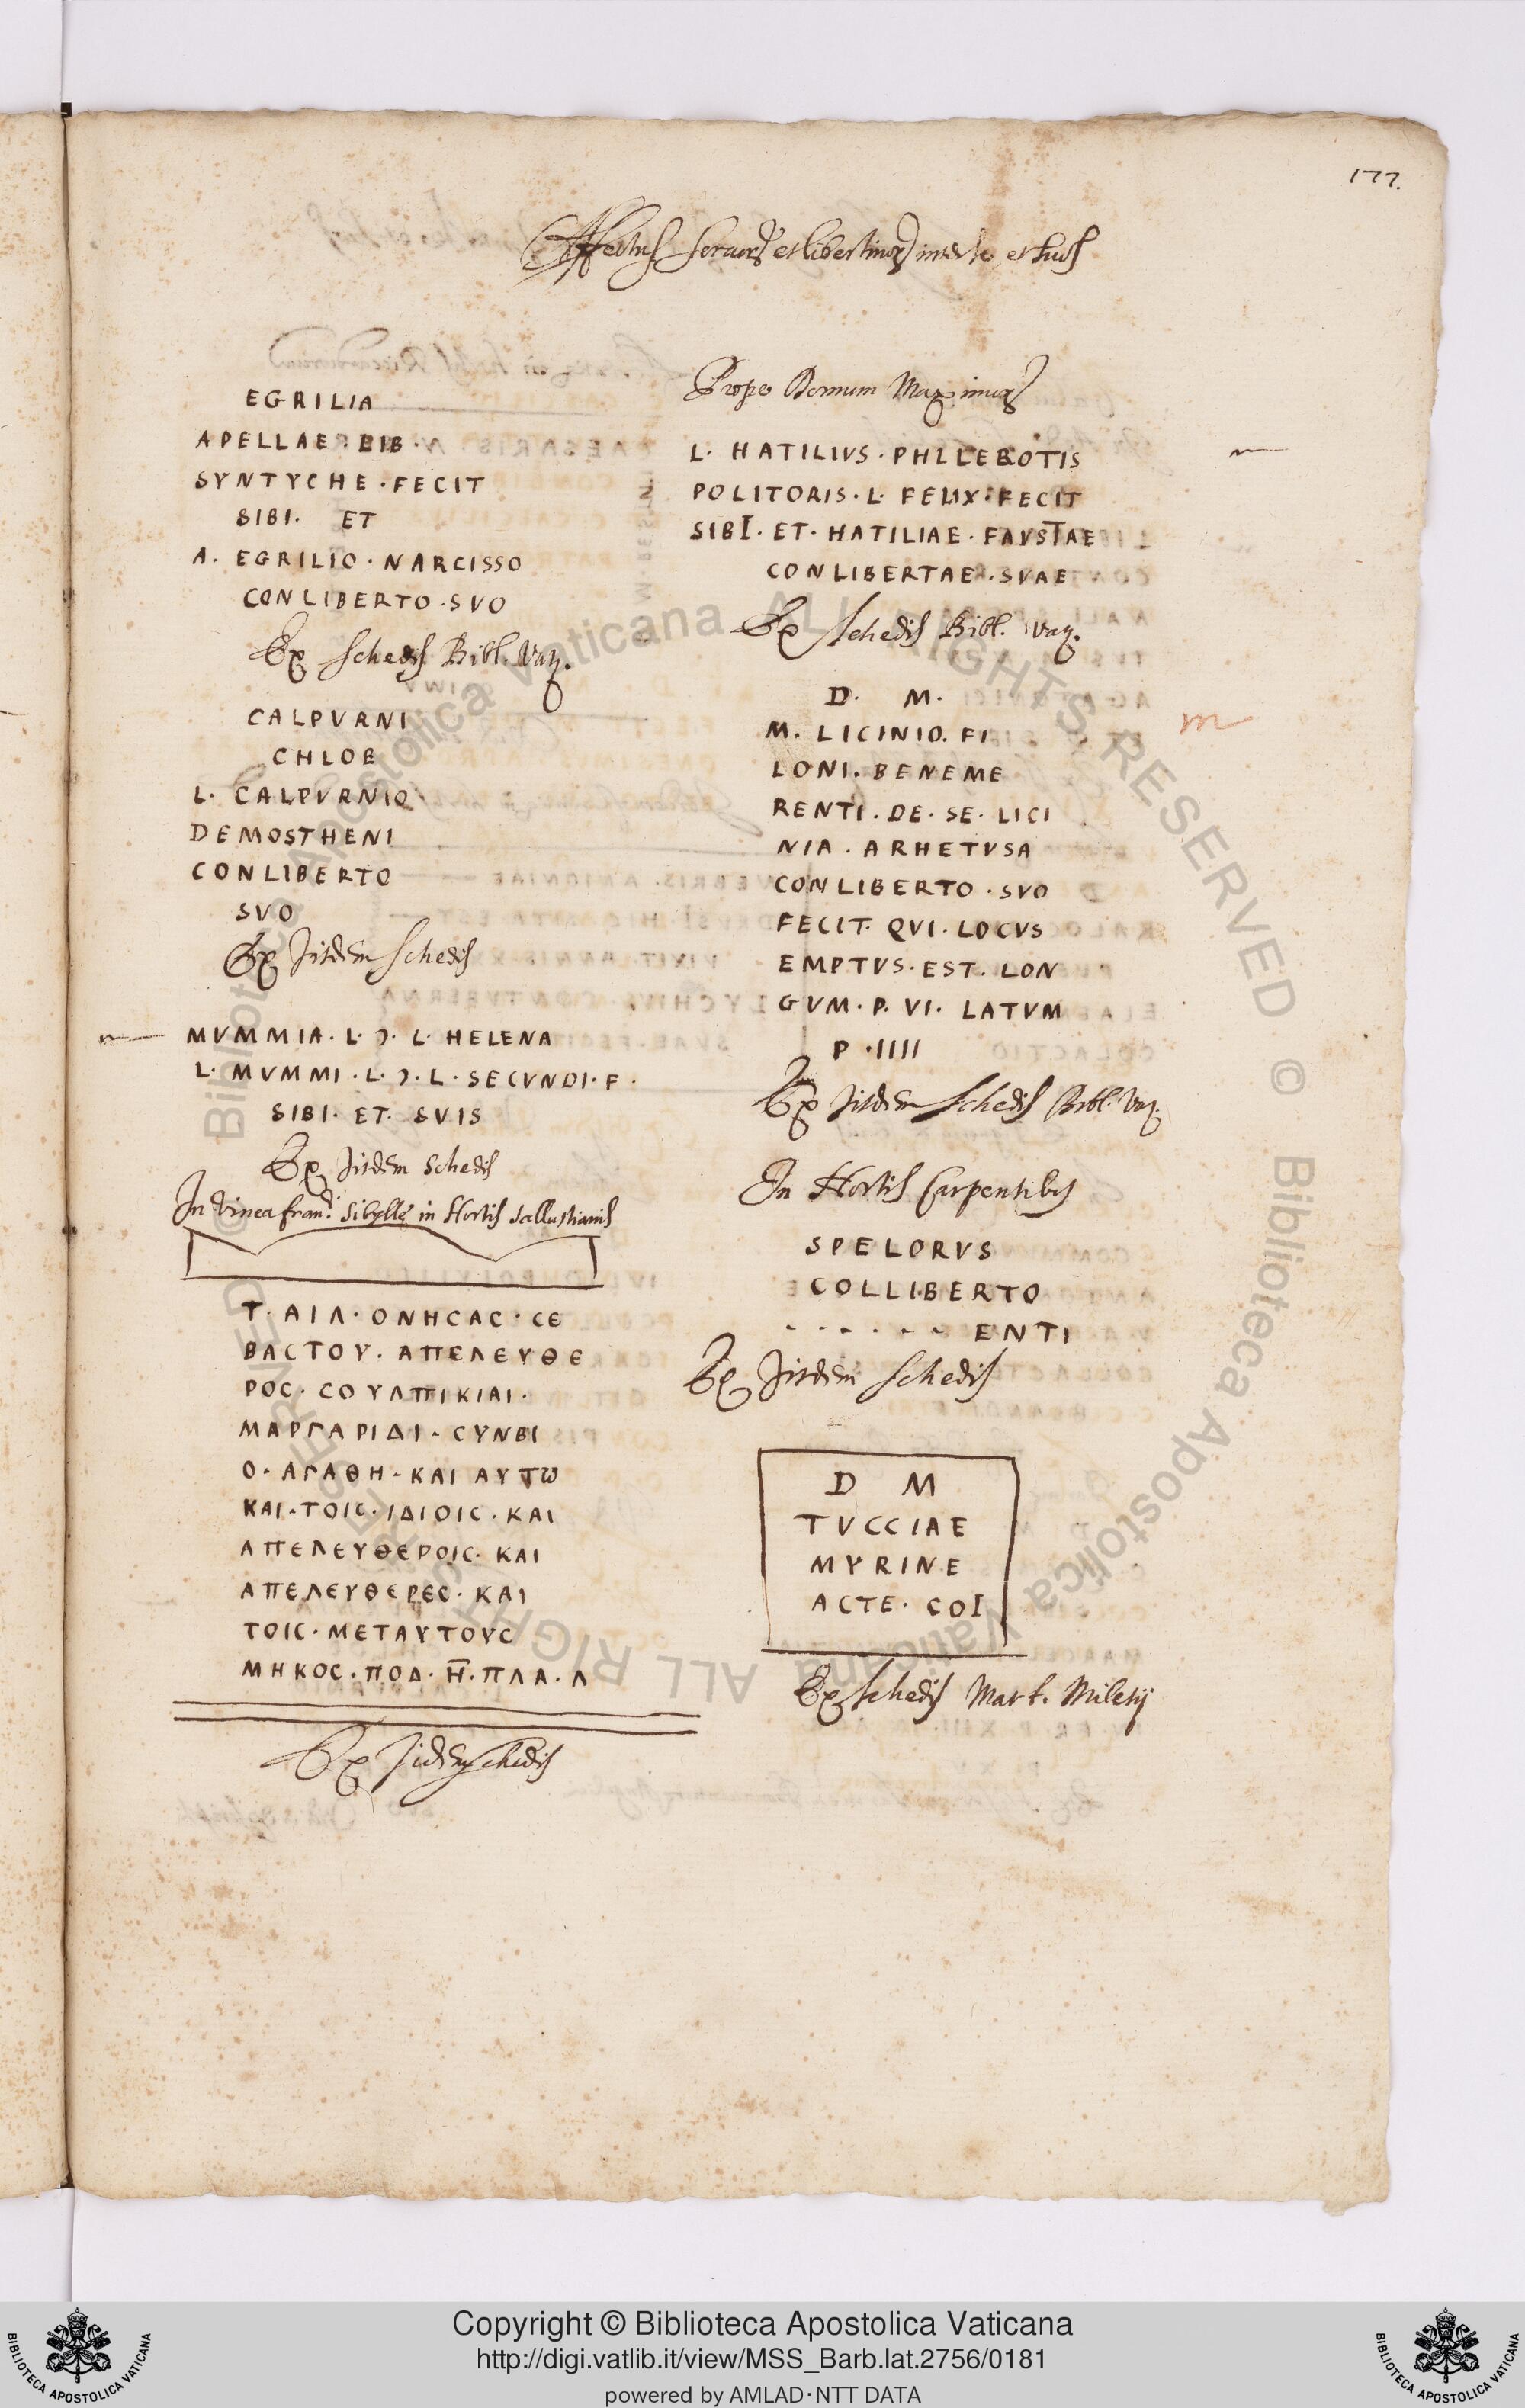 177.
Affectus servorꝝ et libertinorꝝ inter se et suos
EGRILIA
APELLAE. LIB.
SYNTYCHE . FECIT
SIBI. ET
A. EGRILIO . NARCISSO
CONLIBERTO . SVO
Ex schedis Bibl. Vaț.
CALPVRNI
CHLOE
L. CALPVRNIO
DEMOSTHENI
CONLIBERTO
SVO
Ex Iisdem Schedis
MVMMIA . L . Ɔ . L . HELENA
L . MVMMI . L . Ɔ . L . SECVNDI . F .
SIBI . ET . SVIS
Ex Iisdem Schedis
In Vinea franc. Sibyllę in Hortis Sallustianis
Τ . ΑΙΛ . ΟΝΗCΑC . CΕ
ΒΑCΤΟΥ . ΑΠΕΛΕΥΘΕ
ΡΟC . CΟΥΛΠΙΚΙΑΙ .
ΜΑΡΓΑΡΙΔΙ . CΥΝΒΙ
Ο . ΑΓΑΘΗ . ΚΑΙ ΑΥΤΩ
ΚΑΙ . ΤΟΙC . ΙΔΙΟΙC . ΚΑΙ
ΑΠΕΛΕΥΘΕΡΟΙC . ΚΑΙ
ΑΠΕΛΕΥΘΕΡΕC . ΚΑΙ
ΤΟΙC . ΜΕΤΑΥΤΟΥC
ΜΗΚΟC . ΠΟΔ . Η̅ . ΠΛΑ . Λ
Ex Iisdem schedis
Prope Domum Maximorꝝ
L . HATILIVS . PHLLEROTIS
POLITORIS . L . FELIX . FECIT
SIBI . ET . HATILIAE . FAVSTAE
CONLIBERTAE . SVAE
Ex schedis Bibl. Vaț.
D. M.
M . LICINIO . FI
LONI . BENEME
RENTI . DE . SE . LICI
NIA . ARHETVSA
CONLIBERTO . SVO
FECIT . QVI . LOCVS
EMPTVS . EST . LON
GVM . P . VI . LATVM
P . IIII
Ex Iisdem Schedis Bibl. Vaț.
In Hortis Carpentibus
SPELORVS
COLLIBERTO
. . . . . . ENTI
Ex Iisdem Schedis
D M
TVCCIAE
MYRINE
ACTE . COI
Ex schedis Mart. Miletij
Copyright © Biblioteca Apostolica Vaticana
http://digi.vatlib.it/view/MSS_Barb.lat.2756/0181
powered by AMLAD·NTT DATA
BIBLIOTECA APOSTOLICA VATICANA
BIBLIOTECA APOSTOLICA VATICANA